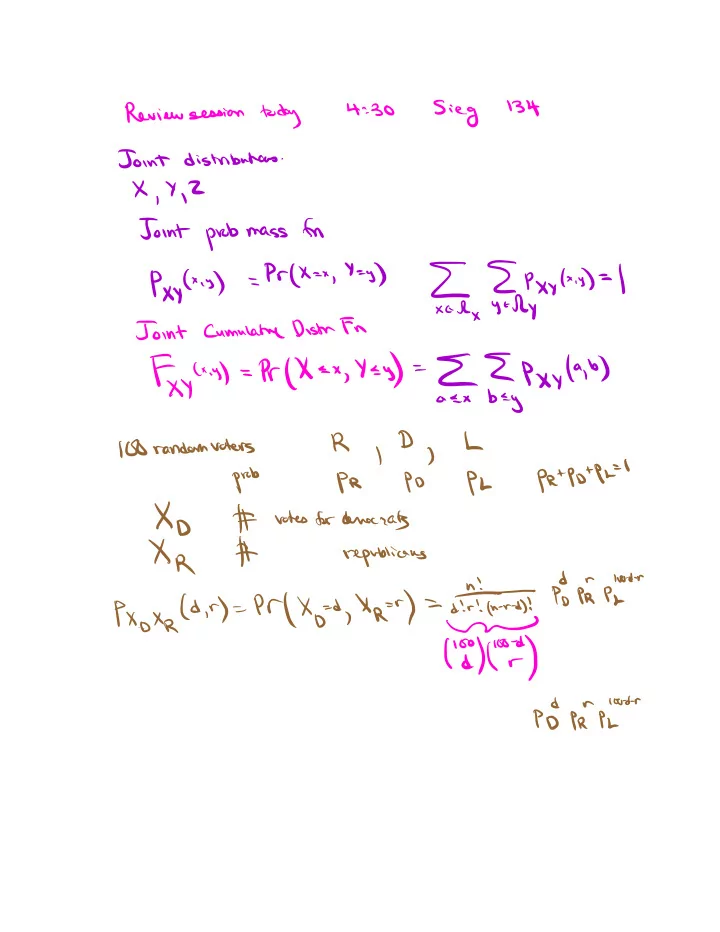 Review session today 4:30 Sieg 134
Joint distributions.
X, Y, Z
Joint prob mass fn
P_XY(x,y) = Pr(X=x, Y=y) ∑_{x∈Ω_X} ∑_{y∈Ω_Y} P_XY(x,y) = 1
Joint Cumulative Distr Fn
F_XY(x,y) = Pr(X≤x, Y≤y) = ∑_{a≤x} ∑_{b≤y} P_XY(a,b)
100 random voters R, D, L
prob P_R P_D P_L P_R+P_D+P_L=1
X_D # votes for democrats
X_R # republicans
P_{X_D X_R}(d,r) = Pr(X_D=d, X_R=r) = n!/(d!r!(n-r-d)!) P_D^d P_R^r P_L^{100-d-r}
(100 d)(100-d r)
P_D^d P_R^r P_L^{100-d-r}